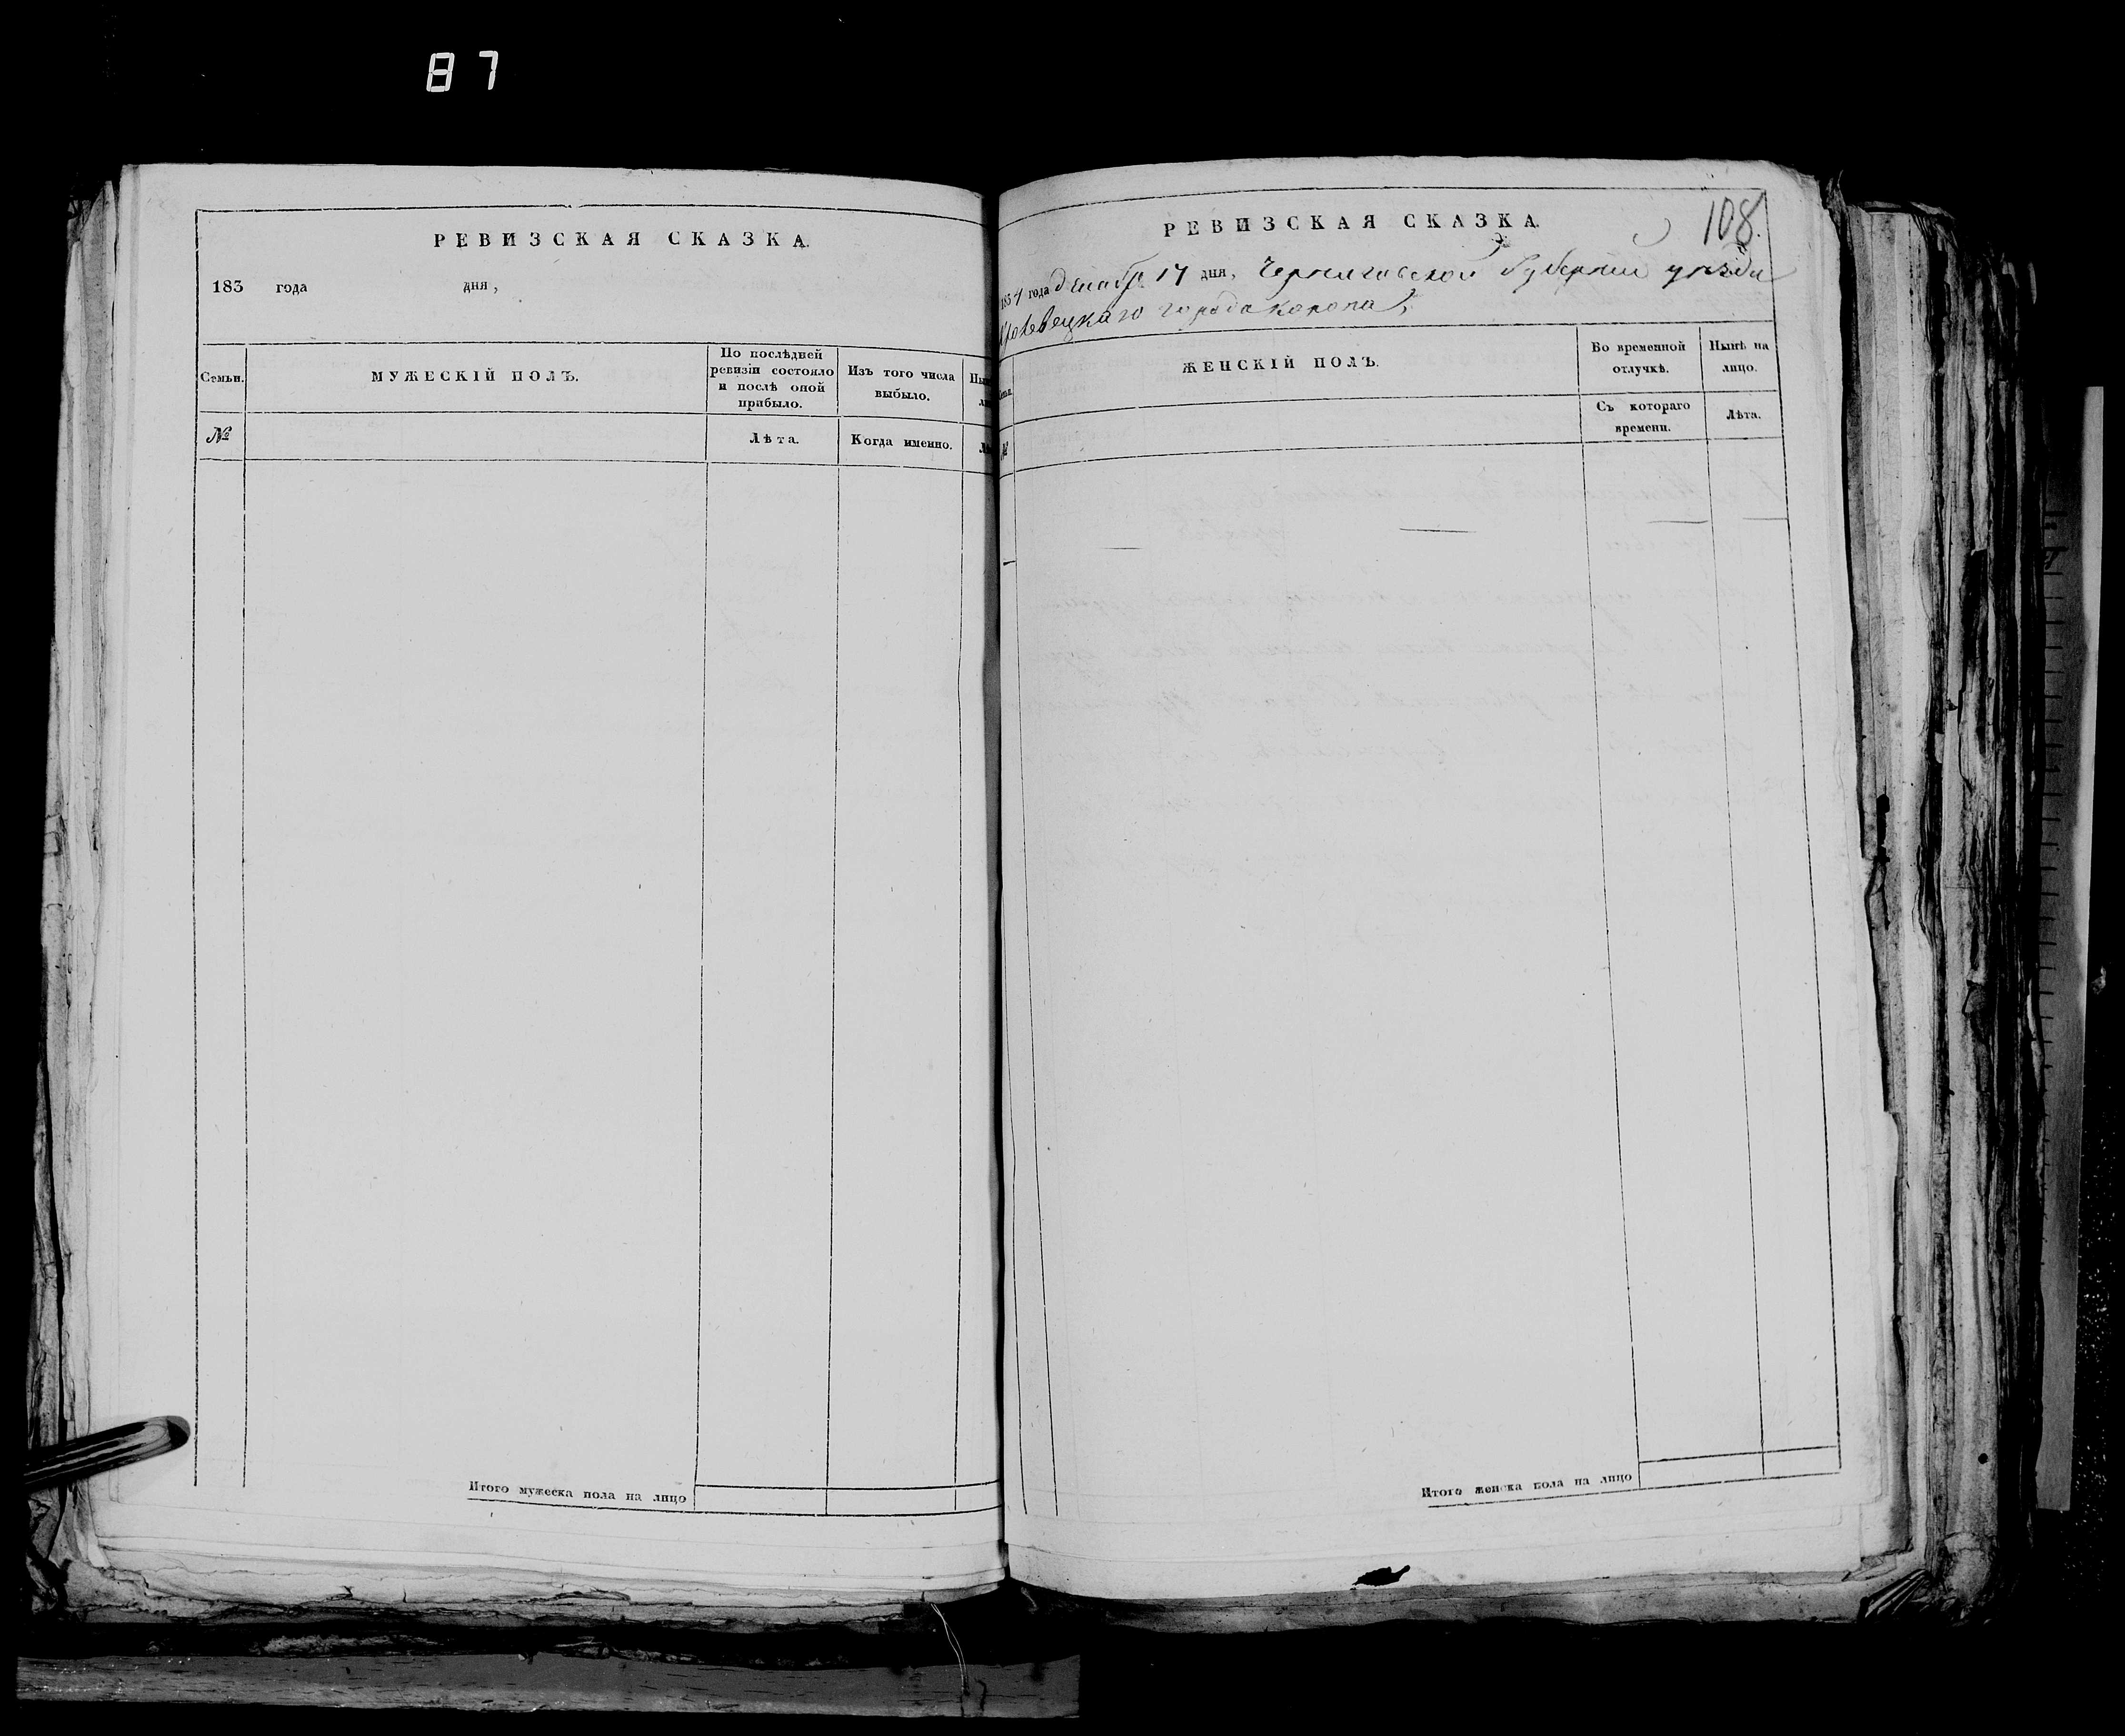 87
РЕВИЗСКАЯ СКАЗКА.
183 года дня,
Семьи.
МУЖЕСКІЙ ПОЛЪ.
По послѣдней
ревизіи состояло
и послѣ оной
прибыло.
Изъ того числа
выбыло.
№
Лѣта.
Когда именно.
Итого мужеска пола на лицо
108.
РЕВИЗСКАЯ СКАЗКА.
1834 года декабр. 17 дня, Черниговской Губернии уѣзда
Кролевецкаго города Коропа,
ЖЕНСКІЙ ПОЛЪ.
Во временной
отлучкѣ.
Нынѣ на
лицо.
№
Съ котораго
времени.
Лѣта.
Итого женска пола на лицо